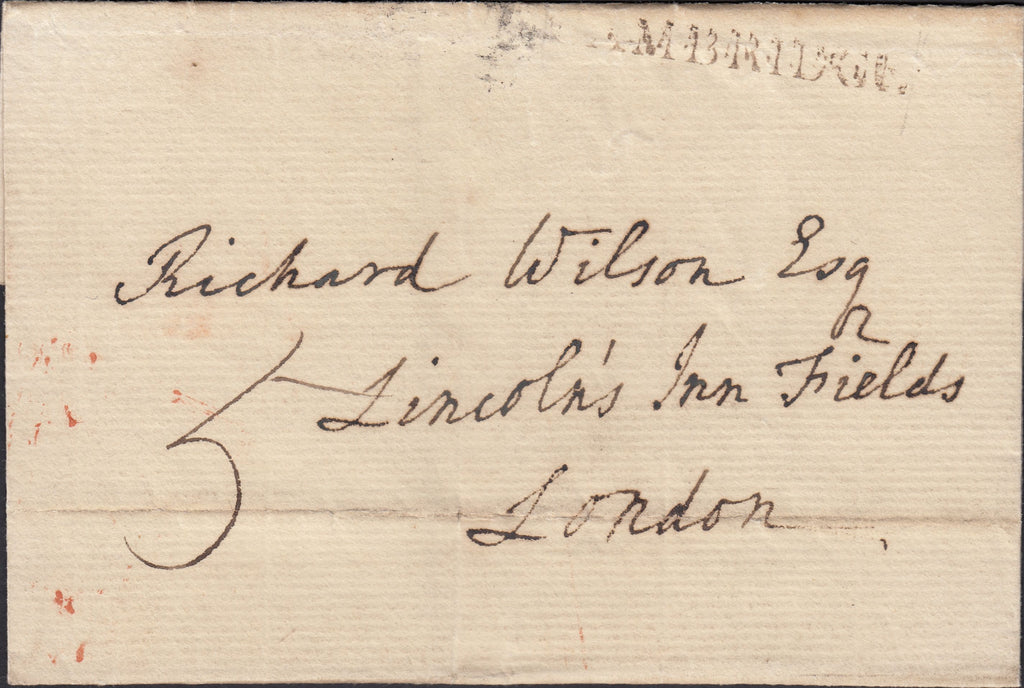 AMBRIDGE.
Richard Wilson Esqr
5
Lincoln's Inn Fields
London